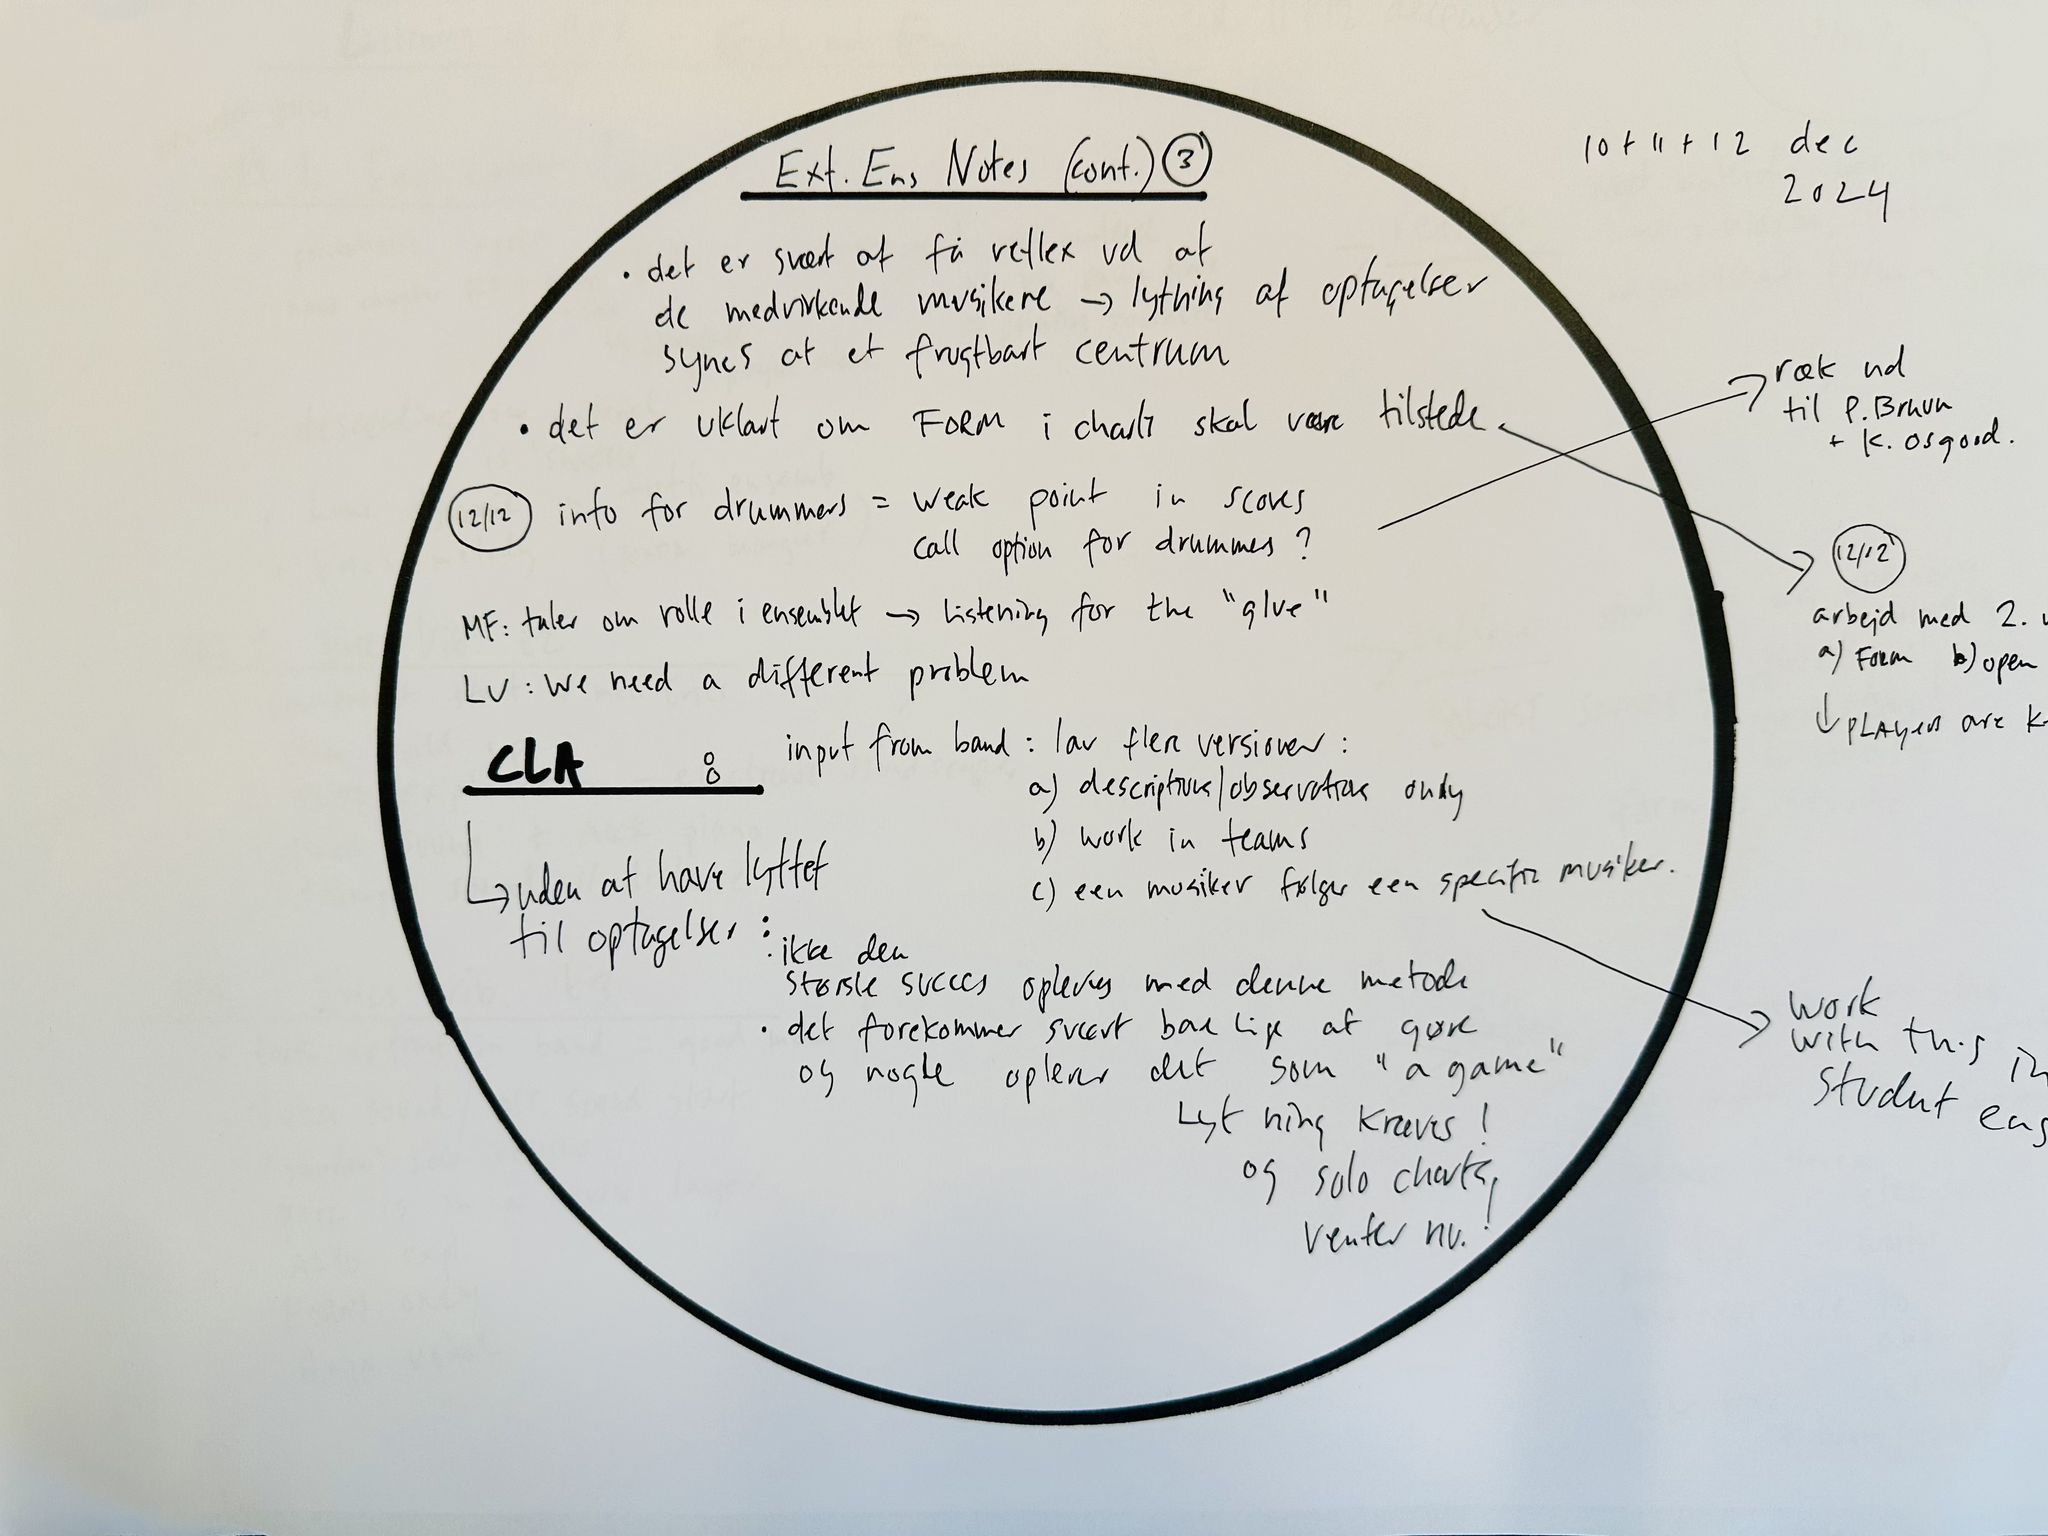 Ext. Ens Notes (cont.) 3
10 + 11 + 12 dec
2024
• det er svært at få reflex ud af
de medvirkende musikere → lytning af optagelser
synes at et frugtbart centrum
• det er uklart om FORM i charts skal være tilstede
ræk ud
til P. Bruun
+ K. Osgood.
12/12 info for drummers = weak point in scores
call option for drummers ?
12/12
arbejd med 2.
a) FORM b) open
↓ PLAYERS are
MF: taler om rolle i ensemblet → Listening for the "glue"
LV : We need a different problem
CLA : input from band : lav flere versioner :
a) descriptions/observations only
b) work in teams
c) een musiker følger een specifik musiker.
↳ uden at have lyttet
til optagelser :
• ikke den
største succes opleves med denne metode
• det forekommer svært bare lige at gøre
og nogle oplever det som "a game"
Lytning kræves !
og solo charts,
venter nu. !
work
with this in
student ens